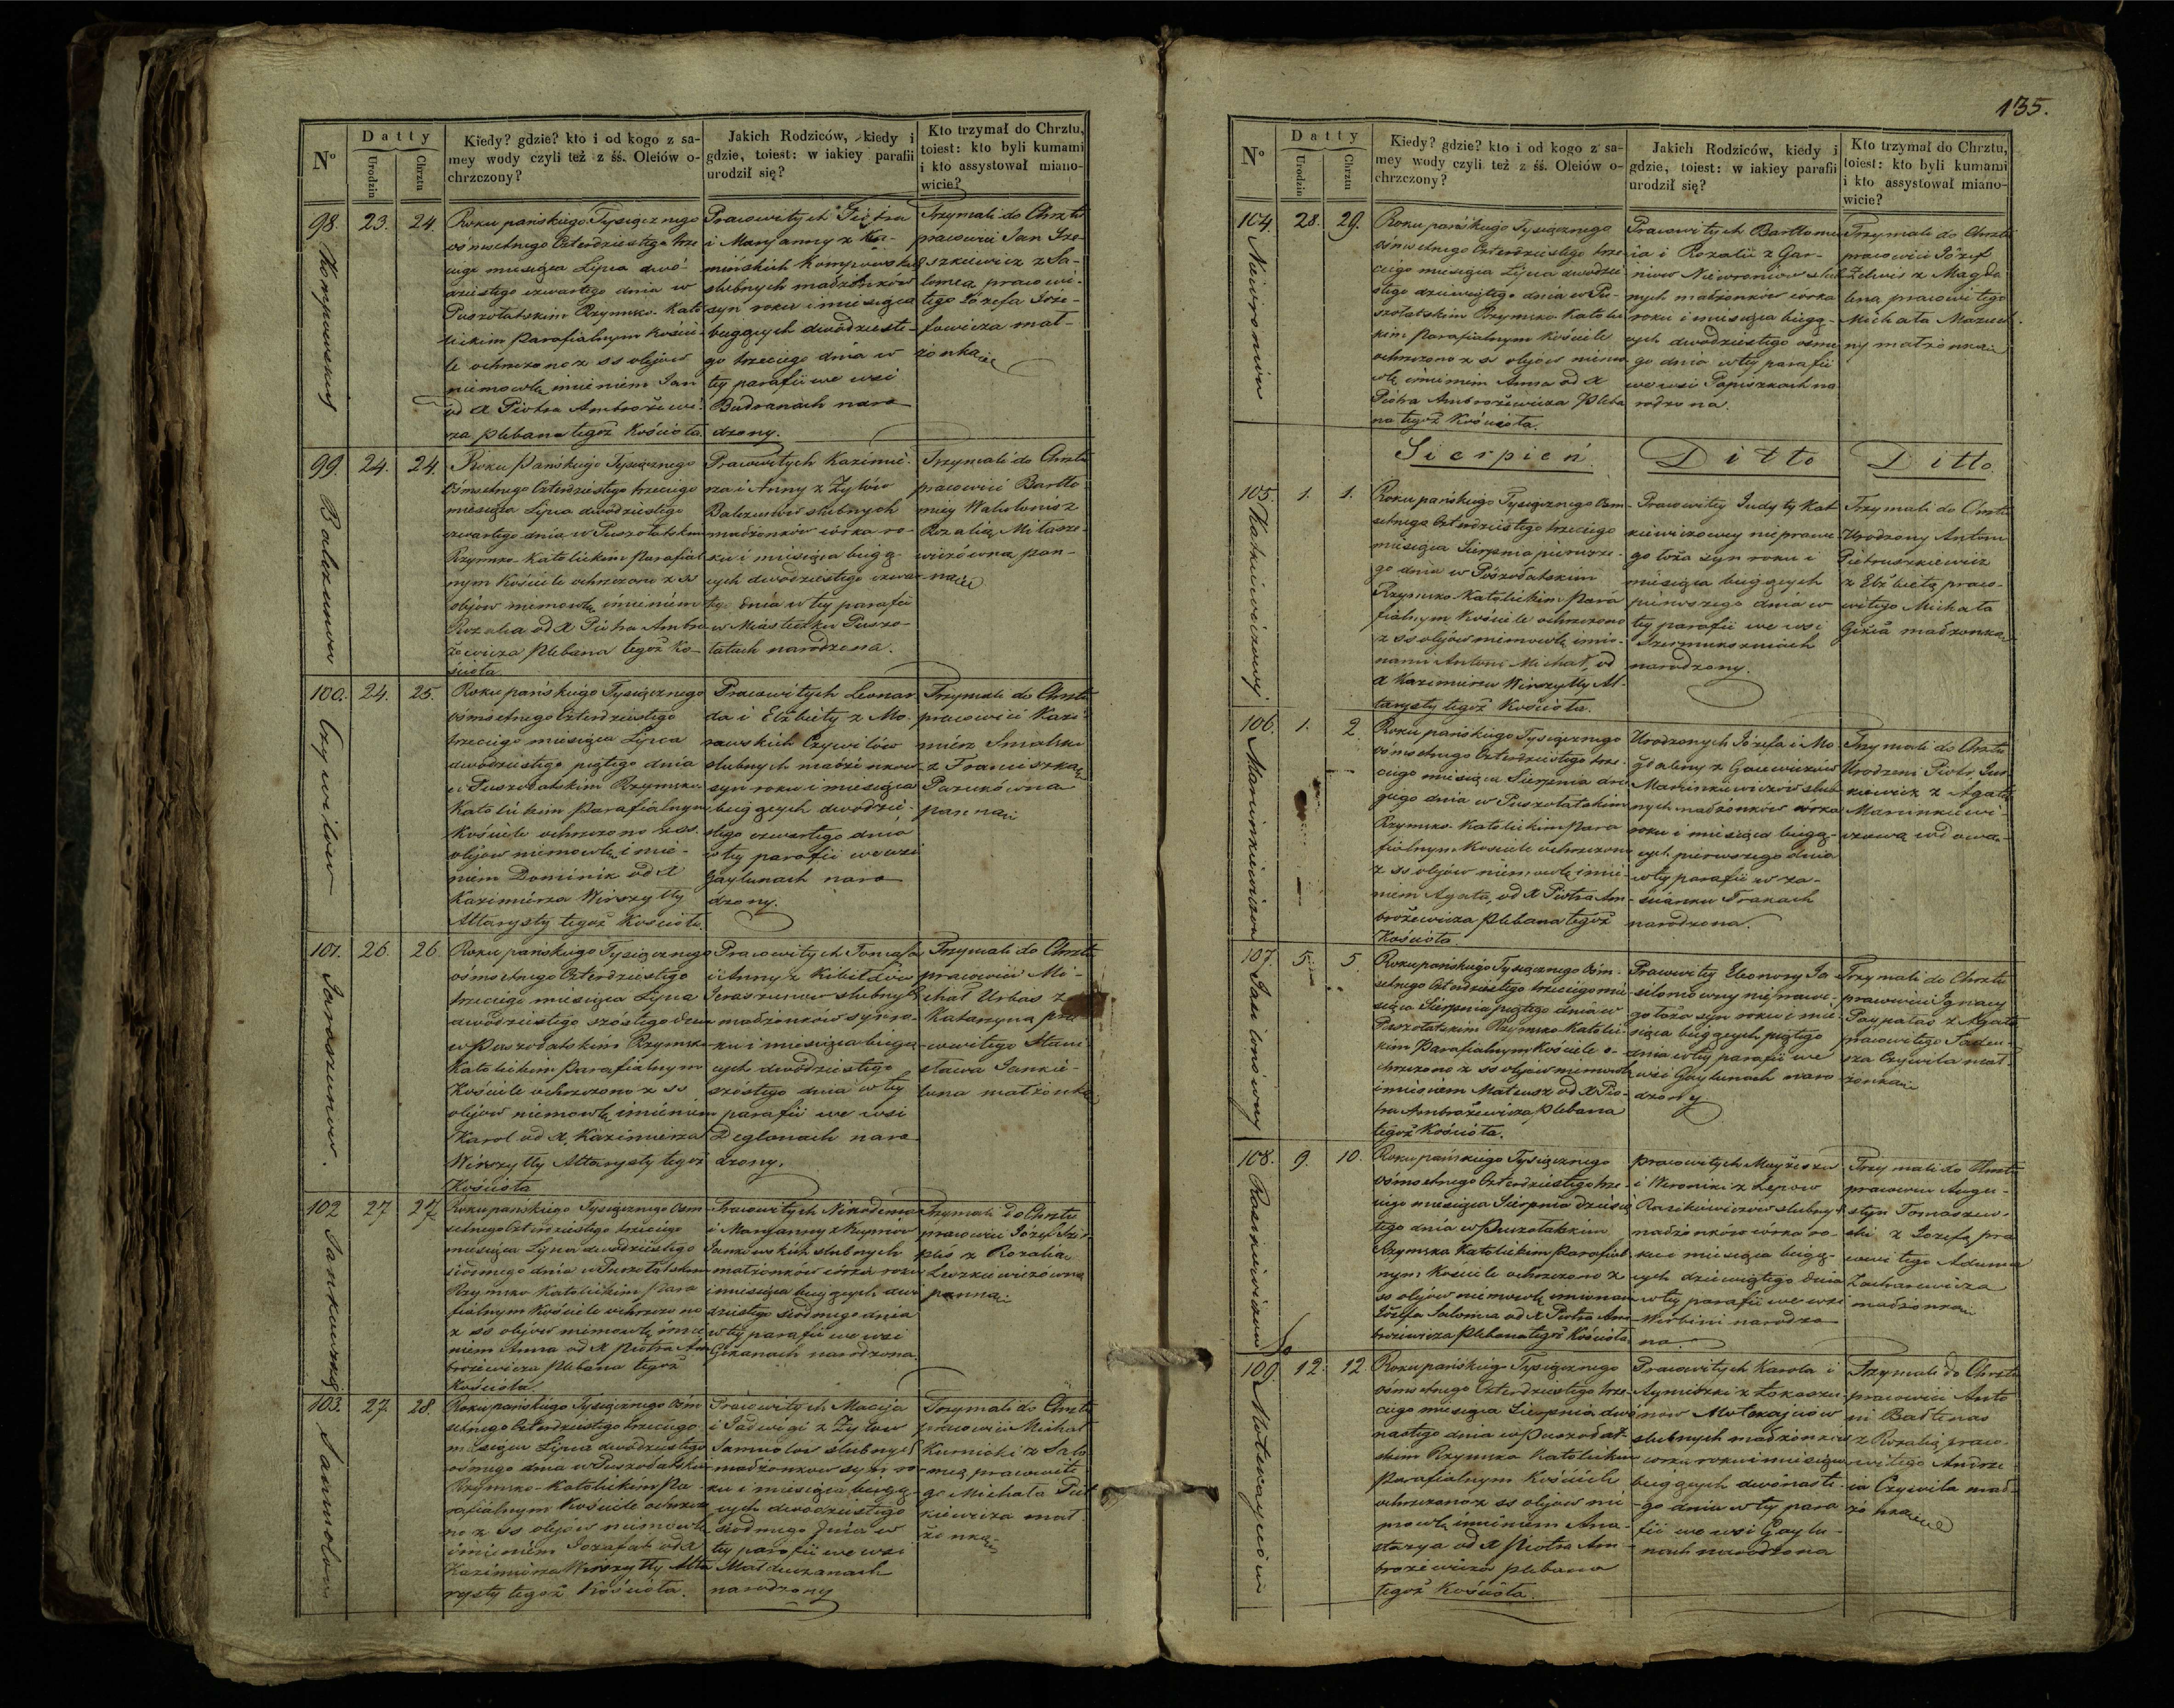 135.
Nº
Datty
Urodzin
Chrztu
Kiedy? gdzie? kto i od kogo z sa-
mey wody czyli też z śś. Oleiów o-
chrzczony?
Jakich Rodziców, kiedy i
gdzie, toiest: w iakiey parafii
urodził się?
Kto trzymał do Chrztu,
toiest: kto byli kumami
i kto assystował miano-
wicie?
98.
23.
24.
Roku pańskiego Tysiącznego
ośmsetnego Czterdziestego trze
ciego miesiąca Lipca dwó-
dziestego czwartego dnia w
Puszołatskim Rzymsko-Kato
lickim Parafialnym Koście-
le ochrzczono z ss olejów
niemowlę imieniem Jan
od X Piotra Ambrożewi-
cza plebana tegoż Kościoła.
Pracowitych Piotra
i Maryanny z Ka-
mińskich
slubnych małżonków
syn roku i miesiąca
bieżących dwódzieste-
go trzeciego dnia w
tey parafii we wsi
Budranach naro
dzony.
Trzymali do Chrztu
pracowici Jan
z Sa-
lomeą pracowi-
tego Józefa Józe-
fowicza mał-
żonką
99.
24.
24.
Roku Pańskiego Tysiącznego
Ośmsetnego Czterdziestego trzeciego
miesiąca Lipca dwódziestego
czwartego dnia w Puszołatskim
Rzymsko-Katolickim Parafial
nym Kościele ochrzczono z ss
olejów niemowlę imieniem
Rozalia od X Piotra Ambro
żewicza Plebana tegoż Ko-
ścioła
Pracowitych Kazimie-
rza i Anny z Zyłów
Balczunów slubnych
małżonków córka ro-
ku i miesiąca bieżą-
cych dwódziestego czwar
tego dnia w tey parafii
w Miasteczku Puszo-
łatach narodzona.
Trzymali do Chrztu
pracowici Bartło
miey
Rozalią Mitasze-
wiczówną pan-
ną
100.
24.
25.
Roku pańskiego Tysiącznego
ośmsetnego Czterdziestego
trzeciego miesiąca Lipca
dwodziestego piątego dnia
w Puszołatskim Rzymsko
Katolickim Parafialnym
Kościele ochrzczono z ss.
olejow niemowlę imie-
niem Dominik od X
Kazimierza Wirszyłły
Altarysty tegoż Kościoła.
Pracowitych Leonar
da i Elżbiety z Mo-
rawskich Czywilów
slubnych małżonkow
syn roku i miesiąca
bieżących dwódzie-
stego czwartego dnia
w tey parafii we wsi
Gaylunach naro
dzony.
Trzymali do Chrztu
pracowici Kazi-
mierz
z Franciszką
panną
101.
26.
26.
Roku pańskiego Tysiącznego
ośmsetnego Czterdziestego
trzeciego miesiąca Lipca
dwódziestego szóstego dnia
w Puszołatskim Rzymsko
Katolickim Parafialnym
Kościele ochrzczono z ss
olejow niemowlę imieniem
Karol od X. Kazimierza
Wirszyłły Altarysty tegoż
Kościoła
Pracowitych Tomasza
i Anny z Kibildów
Jaraszunow slubnych
małżonków syn ro-
ku i miesiąca bieżą
cych dwódziestego
szóstego dnia w tey
parafii we wsi
Deglanach naro
dzony.
Trzymali do Chrztu
pracowici Mi-
chał Urbas z
Katarzyną pra
cowitego Stani
sława Jankie-
luna małżonką
102
27
27
Roku pańskiego Tysiącznego Osm
setnego Czterdziestego trzeciego
miesiąca Lipca dwódziestego
siodmego dnia w Puszołatskim
Rzymsko Katolickim Para
fialnym Kościele ochrzczono
z ss olejów niemowlę imie
niem Anna od X Piotra Am
brożewicza Plebana tegoż
Kościoła.
Pracowitych Nikodema
i Maryanny z
Jankowskich slubnych
małżonków córka roku
i miesiąca bieżących dwó
dziestego siodmego dnia
w tey parafii we wsi
narodzona.
Trzymali do Chrztu
pracowici Józef
z Rozalią
Leszkiewiczówną
panną
103.
27
28.
Roku pańskiego Tysiącznego Ośm
setnego Czterdziestego trzeciego
miesiąca Lipca dwódziestego
osmego dnia w Puszołatskim
Rzymsko-Katolickim Pa
rafialnym Kościele ochrzczo
no z ss olejów niemowlę
imieniem Jozafat od X
Kazimierza Wirszyłły Alta
rysty tegoż Kościoła.
Pracowitych Macieja
i Jadwigi z Zyłow
Samulow slubnych
małżonkow syn ro-
ku i miesiąca bieżą-
cych dwódziestego
siodmego dnia w
tey parafii we wsi
narodzony
Trzymali do Chrztu
pracowici Michał
z Salo
meą pracowite
go Michała
kiewicza mał-
żonką
104.
28.
29.
Roku pańskiego Tysiącznego
Ośmsetnego Czterdziestego trze
ciego miesiąca Lipca dwódzie
stego dziewiątego dnia w Pu-
szołatskim Rzymsko Katolic
kim Parafialnym Kościele
ochrzczono z ss olejow niemo
wlę imieniem Anna od X
Piotra Ambrożewicza Pleba
na tegoż Kościoła.
Pracowitych Bartłomie
ia i Rozalii z Gar-
niów Niewroniow slub
nych małżonków córka
roku i miesiąca bieżą-
cych dwódziestego ósme
go dnia w tey parafii
we wsi Papiszkach na
rodzona.
Trzymali do Chrztu
pracowici Józef
z Magda
leną pracowitego
Michała
małżonką
Sierpień.
Ditto
Ditto
105.
1.
1.
Roku pańskiego Tysiącznego Osm
setnego Czterdziestego trzeciego
miesiąca Sierpnia pierwsze-
go dnia w Poszołatskim
Rzymsko-Katolickim Para
fialnym Kościele ochrzczono
z ss olejów niemowlę imio-
nami Antoni Michał, od
X Kazimierza Wirszyłły Al-
tarysty tegoż Kościoła.
Pracowitey Judyty Kat-
kiewiczowey nieprawe-
go łoża syn roku i
miesiąca bieżących
pierwszego dnia w
tey parafii we wsi
narodzony.
Trzymali do Chrztu
Urodzony Antoni
Pietruszkiewicz
z Elżbietą praco-
witego Michała
małżonką
106.
1.
2
Roku pańskiego Tysiącznego
Ośmsetnego Czterdziestego trze-
ciego miesiąca Sierpnia dru
giego dnia w Puszołatskim
Rzymsko-Katolickim Para
fialnym Kościele ochrzczono
z ss olejów niemowlę imie-
niem Agata, od X Piotra Am-
brożewicza Plebana tegoż
Kościoła.
Urodzonych Józefa i Ma
gdaleny z Gaiewiczów
Marcinkiewiczów slub
nych małżonków córka
roku i miesiąca bieżą-
cych pierwszego dnia
w tey parafii w za-
scianku Trakach
narodzona.
Trzymali do Chrztu
Urodzeni Piotr
z Agatą
Marcinkiewi-
czową wdową
107.
5
5
Roku pańskiego Tysiącznego Ośm-
setnego Czterdziestego trzeciego mie
siąca Sierpnia piątego dnia w
Puszołatskim Rzymsko Katolic
kim Parafialnym Kościele o-
chrzczono z ss olejow niemowlę
imieniem Mateusz od X Pio-
tra Ambrożewicza Plebana
tegoż Kościoła.
Pracowitey Eleonory Ja
silonowny nieprawe-
go łoża syn roku i mie-
siąca bieżących piątego
dnia w tey parafii we
wsi Gaylunach naro
dzony
Trzymali do Chrztu
pracowici Ignacy
z Agatą
pracowitego Tadeu-
sza Czywila mał-
żonką
108.
9.
10.
Roku pańskiego Tysiącznego
ośmsetnego Czterdziestego trze-
ciego miesiąca Sierpnia dziesią
tego dnia w Puszołatskim
Rzymsko Katolickim Parafial-
nym Kościele ochrzczono z
ss olejow niemowlę imionami
Józefa Salomea od X Piotra Am-
brożewicza Plebana tegoż Kościoła
pracowitych
i Weroniki z Lepow
slubnych
małżonków córka ro-
ku i miesiąca bieżą-
cych dziewiątego dnia
w tey parafii we wsi
narodzo
na.
Trzymali do Chrztu
pracowici Augu-
styn Tomaszew-
ski z Jozefą pra
cowitego Adama
Zacharewicza
małżonką
109.
12.
12
Roku pańskiego Tysiącznego
ośmsetnego Czterdziestego trze-
ciego miesiąca Sierpnia dwu
nastego dnia w Puszołat-
skim Rzymsko Katolickim
Parafialnym Kościele
ochrzczono z ss olejow nie
mowlę imieniem Ana-
stazya od X Piotra Am-
brożewicza plebana
tegoż Kościoła.
Pracowitych Karola i
z
slubnych małżonków
córka roku i miesiąca
bieżących dwónaste-
go dnia w tey para
fii we wsi Gaylu-
nach narodzona
Trzymali do Chrztu
pracowici Anto
ni
z Rozalią praco-
witego Andrze
ia Czywila mał-
żonką